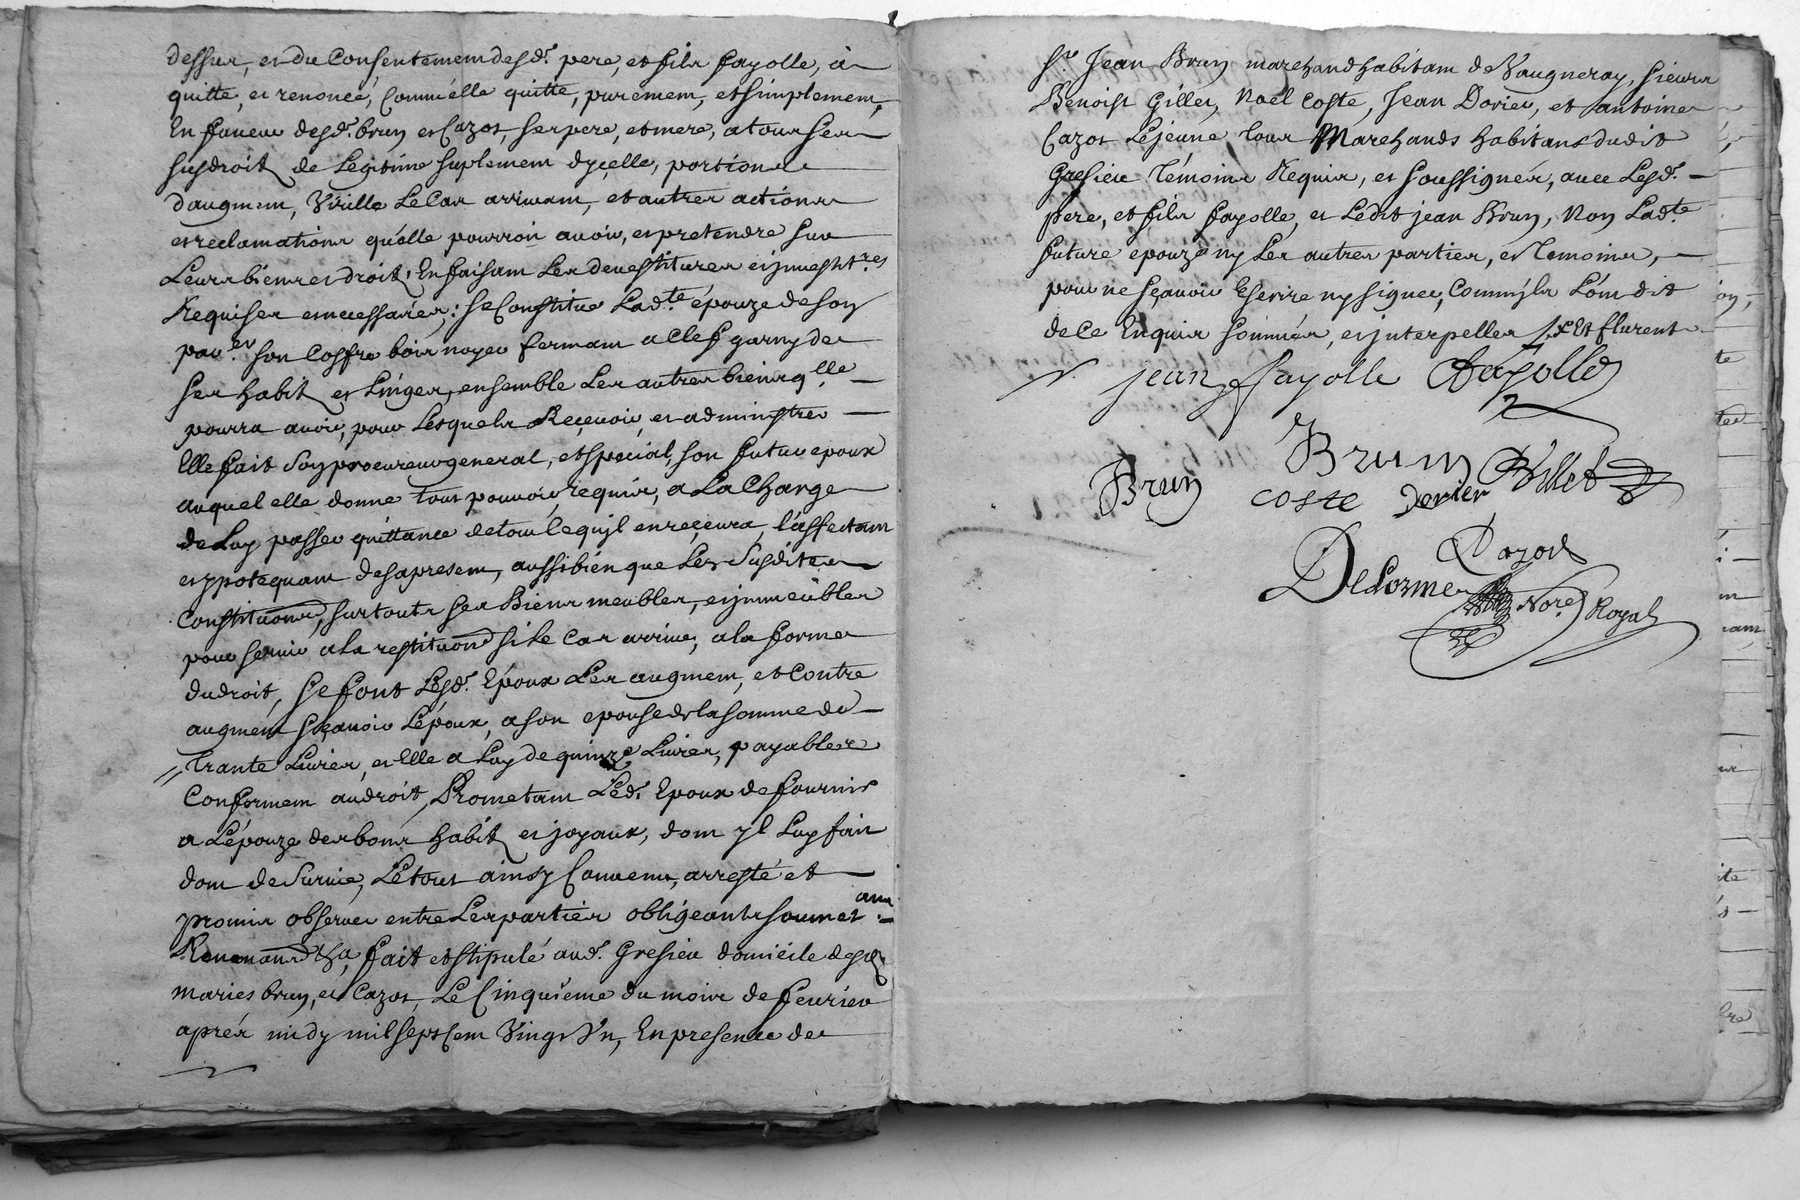 dessus, et du Consentement desd. pere, et fils fayolle, a
quitté, et renoncé, Comme élle quitte, purement, et simplement,
En faveur desd. brun et Cazot, ses pere, et mere, a tous ses
susdroits de Legitime suplement dyçelle, portion
daugment, Virille Le Cas arrivant, et autres actions
et reclamations quélle pourroit avoir, et pretendre sur
Leurs biens et droits, En faisant Les devestitures et jnvestit.res
Requises et necessaires; se Constitue Lad.te épouze de soy
pour son Coffre bois noyer fermant a clef garny de
ses habits et Linges, ensemble Les autres biens q.lle
pourra avoir, pour Lesquels Reçevoir, et administrer
Elle fait Son procureur general, et special, son futur epoux
auquel elle donne tout pouvoir requis, a La Charge
de Luy passer quittance de tout ce quil en reçevra, l'affectant
et ypotequant des apresent, aussi bién que Les Susdites
Constitutions, sur touts ses Biens meubles, et jmmeubles
pour servir a la restitution si Le cas arrive, a la forme
du droit, se font Lesd. Epoux Les augment, et Contre
augment sçavoir L'époux, a son epouse de la somme de
Trante Livres, et Elle a Luy de quinze Livres, payables
Conformement au droit, Prometant Led. Epoux de fournir
a L'épouze des bons habits et joyaux, dont yl Luy fait
don de Survie, Le tout ainsy Convenu, arresté et
promis observer entre Les parties obligeants soumet ans
Renonant &a, fait et stipulé aud. Gresieu domicile desd.
maries brun, et Cazot, Le Cinquiéme du mois de feurier
aprés midy mil sept Cent Vingt Vn, En presence de
Sr Jean Brun marchand habitant de Vaugneray, sieurs
Benoist Gillet, Noel Coste, Jean Dorier, et antoine
Cazot Lejeune tous Marchands habitans dudit
Gresieu Témoins Requis, et soussignés, avec Lesd.
pere, et fils fayolle, et Ledit jean Brun, Non Lad.te
future epouze ny Les autres parties, et Temoins,
pour ne sçavoir Escrire ny signer, Comme jls L'ont dit
de Ce Enquis sommés, et jnterpellés
jean fayolle fayolle
Brun
Brun coste Dorier Gillet
Cazot
Delorme Nore Royal